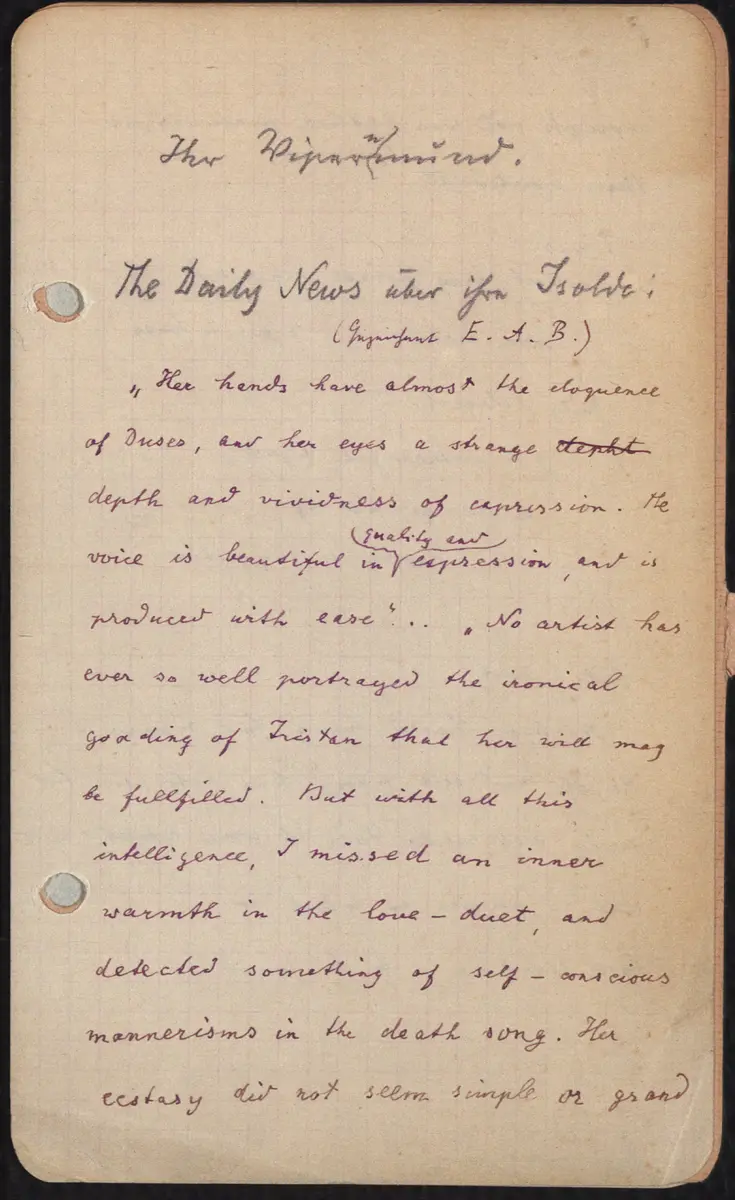 Ihr Vipernmund.
The Daily News über ihre Isolde:
( E. A. B.)
„Her hands have almost the eloquence
of Duses, and her eyes a strange depht
depth and vividness of expression. He
voice is beautiful in quality and expression, and is
produced with ease“... „No artist has
ever so well portrayed the ironical
goading of Tristan that her will may
be fullfilled. But with all this
intelligence, I missed an inner
warmth in the love - duet, and
detected something of self - conscious
mannerisms in the death song. Her
ecstasy did not seem simple or grand